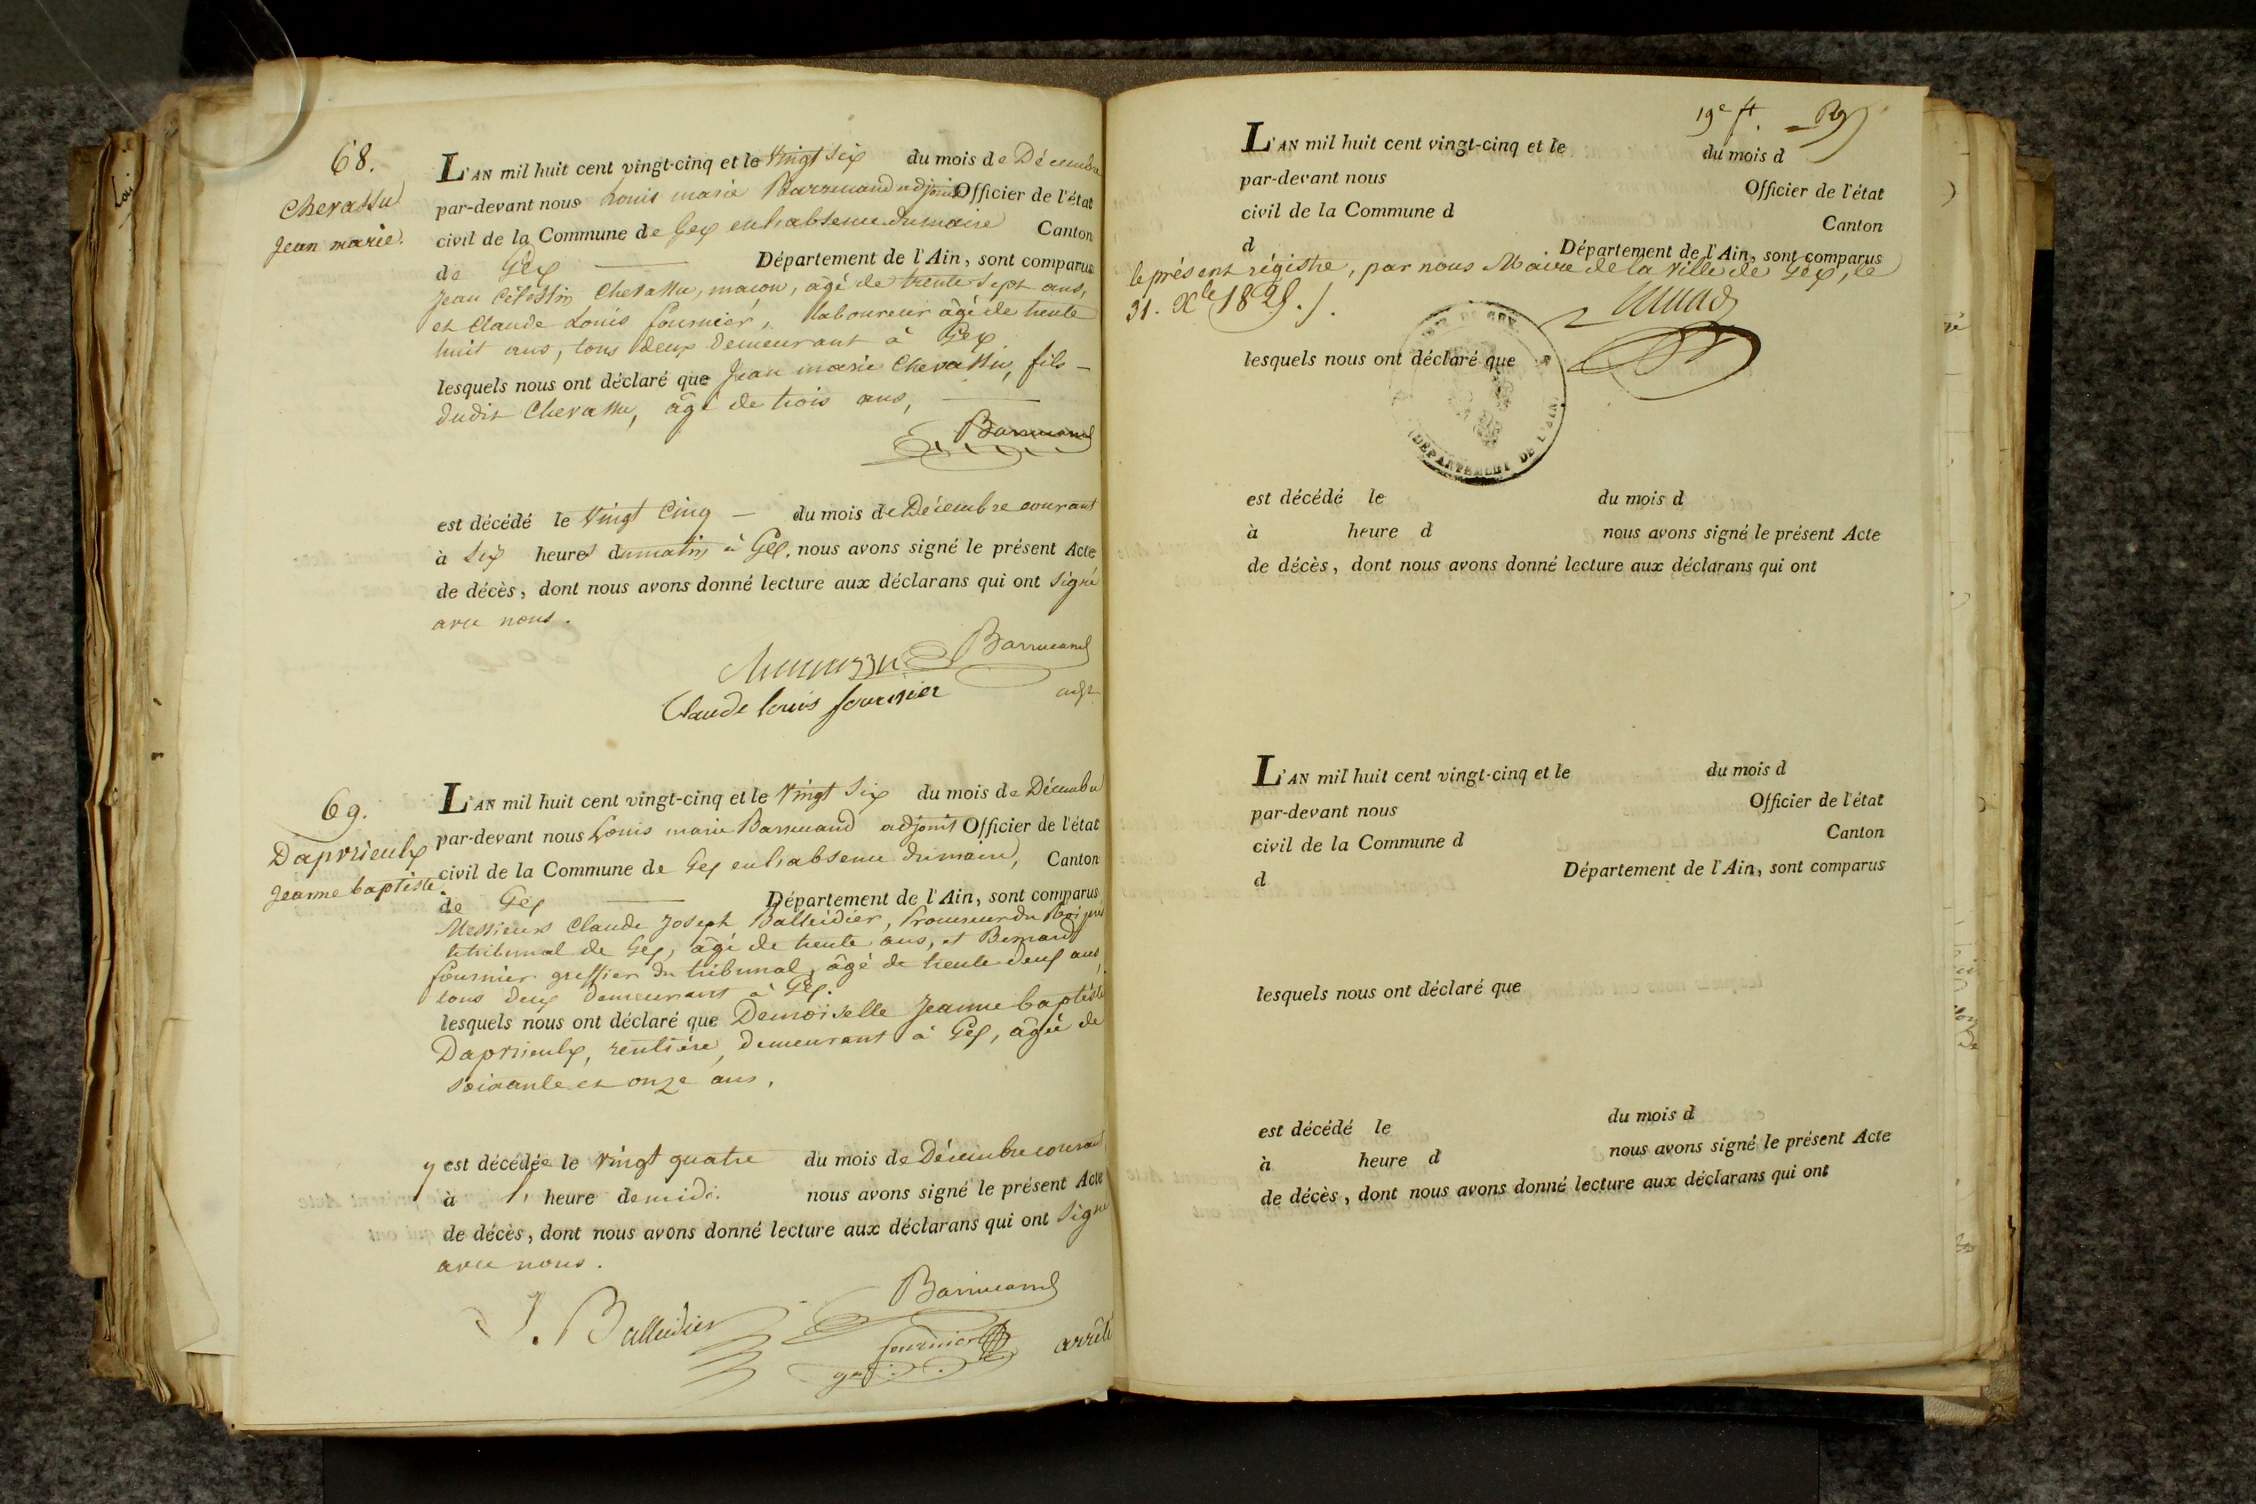 68.
Chevassu
Jean marie.
L'AN mil huit cent vingt-cinq et le vingt six du mois de Décembre
par-devant nous Louis marie Barruand adjoint Officier de l'état
civil de la Commune de Gex en l'absence du maire Canton
de Gex Département de l'Ain, sont comparus
Jean Célestin Chevassu, macon, âgé de trente sept ans,
et Claude Louis fournier, laboureur âgé de trente
huit ans, tous deux demeurant à Gex
lesquels nous ont déclaré que Jean marie Chevassu, fils
dudit Chevassu, âgé de trois ans,
Barruand
est décédé le vingt Cinq du mois de Décembre courant
à Six heures du matin à Gex. nous avons signé le présent Acte
de décès, dont nous avons donné lecture aux déclarans qui ont signé
avec nous.
Barruand
Claude louis fournier
69.
Daprieulx
Jeanne baptiste.
L'AN mil huit cent vingt-cinq et le vingt Six du mois de Décembre
par-devant nous Louis marie Barruand adjoint Officier de l'état
civil de la Commune de Gex en l'absence du maire, Canton
de Gex Département de l'Ain, sont comparus
Messieurs Claude Joseph Balleidier, Procureur du Roi près
le tribunal de Gex, âgé de trente ans, et Bernard
fournier greffier du tribunal, âgé de trente deux ans,
tous deux demeurant à Gex.
lesquels nous ont déclaré que Demoiselle Jeanne baptiste
Daprieulx, rentière, demeurant à Gex, âgée de
soixante et onze ans,
y est décédée le vingt quatre du mois de Décembre courant,
à heure de midi. nous avons signé le présent Acte
de décès, dont nous avons donné lecture aux déclarans qui ont signé
avec nous.
J. Balleidier
Barruand
fournier
arrêté
19e ft.
L'AN mil huit cent vingt-cinq et le du mois d
par-devant nous Officier de l'état
civil de la Commune d Canton
d Département de l'Ain, sont comparus
le présent régistre, par nous Maire de la ville de Gex, le
31. Xbre 1825.
lesquels nous ont déclaré que
DÉPARTEMENT DE L'AIN
est décédé le du mois d
à heure d nous avons signé le présent Acte
de décès, dont nous avons donné lecture aux déclarans qui ont
L'AN mil huit cent vingt-cinq et le du mois d
par-devant nous Officier de l'état
civil de la Commune d Canton
d Département de l'Ain, sont comparus
lesquels nous ont déclaré que
est décédé le du mois d
à heure d nous avons signé le présent Acte
de décès, dont nous avons donné lecture aux déclarans qui ont